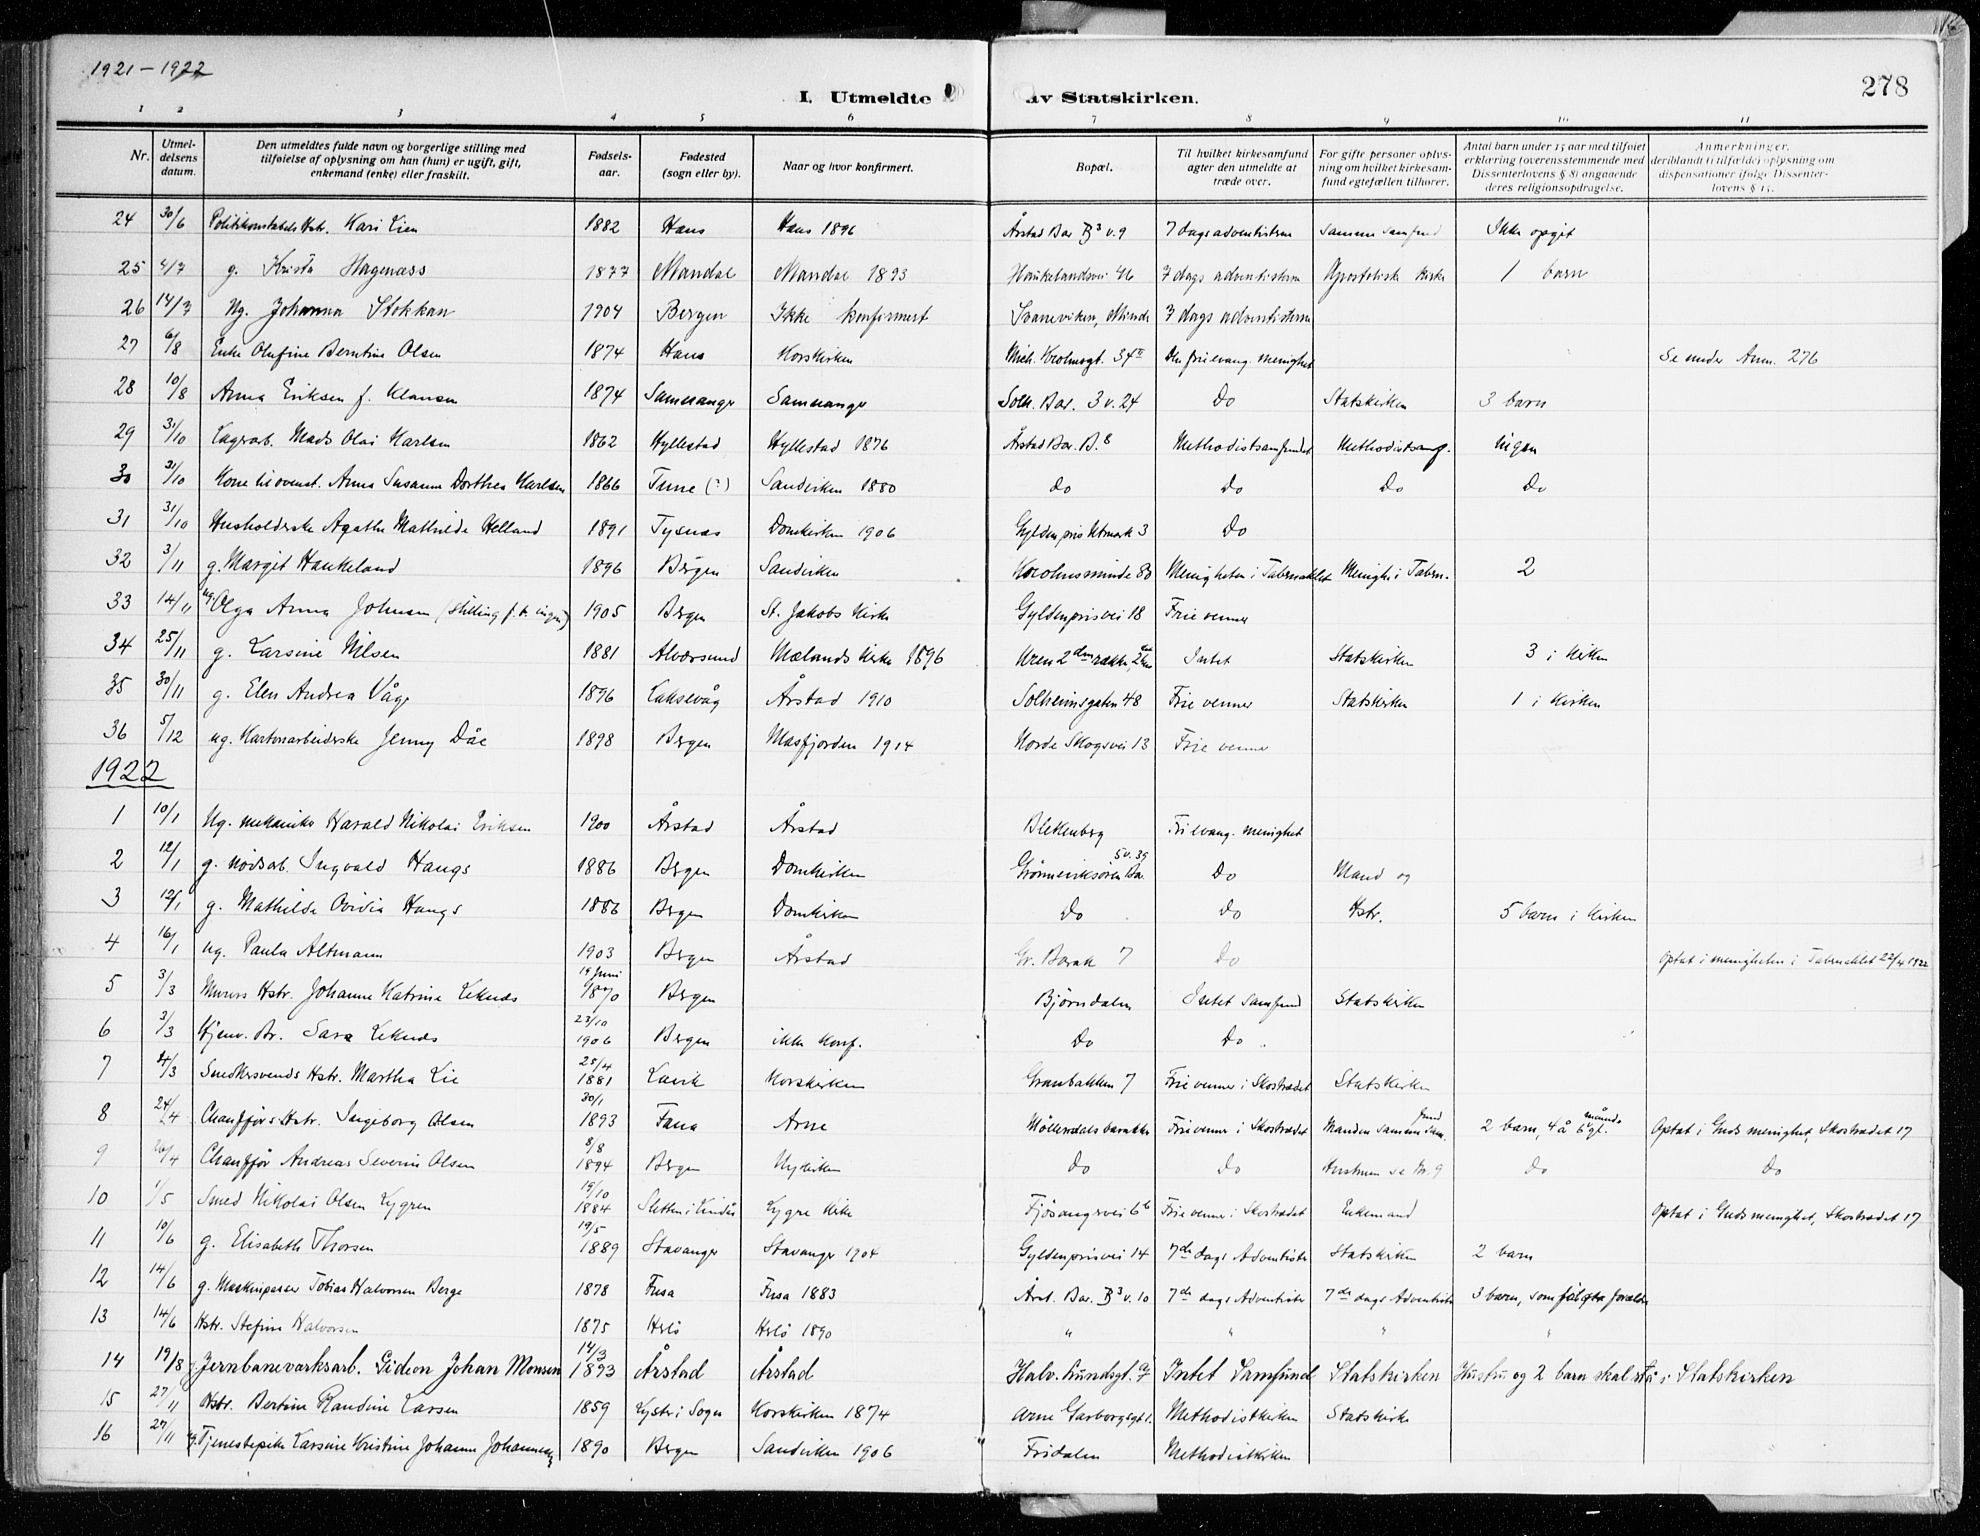 1921-1922
278
I. Utmeldte av Statskirken.
1 2 3 4 5 6 7 8 9 10 11
Nr. | Utmeldelsens datum. | Den utmeldtes fulde navn og borgerlige stilling med tilføielse af oplysning om han (hun) er ugift, gift, enkemand (enke) eller fraskilt. | Fødselsaar. | Fødested (sogn eller by). | Naar og hvor konfirmert. | Bopæl. | Til hvilket kirkesamfund agter den utmeldte at træde over. | For gifte personer oplysning om hvilket kirkesamfund egtefællen tilhører. | Antal barn under 15 aar med tilføiet erklæring (overensstemmende med Dissenterlovens § 8) angaaende deres religionsopdragelse. | Anmerkninger, deriblandt (i tilfælde) oplysning om dispensationer ifølge Dissenterlovens § 15.
24 30/6 Politikonstabels Hstr. Kari Lien 1882 Haus Haus 1896 Årstad Bar B³ v. 9 7 dags adventisterne Samme samfund Ikke opgit
25 4/7 g. Krista Hagenæss 1877 Mandal Mandal 1893 Haukelandsvei 46 7 dags adventisterne Apostolisk kirke 1 barn
26 14/7 Ug. Johanna Stokkan 1904 Bergen Ikke konfirmert Svaneviken, Minde 7 dags adventisterne
27 6/8 Enke Olufine Berntine Olsen 1874 Haus Korskirken Mich. Krohnsgt. 34 II Den frievang. menighet Se under Anm. 276
28 10/8 Anna Eriksen f. Klausen 1874 Samnanger Samnanger Solh. Bar. 3 v. 24 Do Statskirken 3 barn
29 31/10 Lagerarb. Mads Olai Karlsen 1862 Hyllestad Hyllestad 1876 Årstad Bar. B.8 Methodistsamfundet Methodistsamf. Ingen
30 31/10 Kone til ovenst. Anna Susanne Dorthea Karlsen 1866 Tune (?) Sandviken 1880 do Do Do Do
31 31/10 Husholderske Agathe Mathilde Helland 1891 Tysnæs Domkirken 1906 Gyldenpris Utmark 3 Do
32 3/11 g. Margit Haukeland 1896 Bergen Sandviken Krohnsminde 80 Menigheten i Tabernaklet Menigh. i Tabern. 2
33 14/11 ug. Olga Anna Johnsen (Stilling f. t. ingen) 1905 Bergen St. Jakobs Kirke Gyldenprisvei 18 Frie venner
34 25/11 g. Larsine Nilsen 1881 Alversund Mælands Kirke 1896 Uren 2den række, Intet Statskirken 3 i kirken
35 30/11 g. Elen Andrea Våge 1896 Laksevåg Årstad 1910 Solheimsgaten 48 Frie venner Statskirken 1 i Kirken
36 5/12 ug. Kartonarbeiderske Jenny Dåe 1898 Bergen Masfjorden 1914 Nordre Skogvei 13 Frie venner
1922
1 10/1 Ug. mekaniker Harald Nikolai Eriksen 1900 Årstad Årstad Blekenberg Fri evang. menighet
2 12/1 g. nødsarb. Ingvald Haugs 1886 Bergen Domkirken Grønnevikøren Ba. 5 v. 39 Do Mand og
3 12/1 g. Mathilde Ovidia Haugs 1886 Bergen Domkirken Do Do Hstr. 5 barn i Kirken
4 16/1 ug. Paula Altmann 1903 Bergen Årstad Gr. Barak 7 Do Optat i menigheten i Tabernaklet 22/4 1922
5 3/3 Murers Hstr. Johanne Katrine Leknes 19 Juni 1870 Bergen Bjørndalen Intet Samfund Statskirken
6 3/3 Hjemv. Dr. Sara Leknes 23/10 1906 Bergen ikke konf. Do Do
7 24/3 Smedsvends Hstr. Martha Lie 25/4 1881 Lavik Korskirken Granbakken 7 Frie venner i Skostrædet Statskirken
8 24/4 Chaufførs Hstr. Ingeborg Olsen 30/1 1893 Fana Arne Møllendalsbarakker Frie venner i Skostrædet Manden samme Samfund 2 barn, 4 å 6 månds. gl. Optat i Guds menighet, Skostrædet 17
9 26/4 Chauffør Andreas Severin Olsen 8/8 1894 Bergen Nykirken Do Do Hustruen se Nr. 9 Do Do
10 1/5 Smed Nikolai Olsen Lygren 19/10 1884 Sletten i Lindås Lygre Kirke Fjøsangervei 6 b Frie venner i Skostrædet Enkemand Optat i Guds menighet, Skostrædet 17
11 10/6 g. Elisabeth Thorsen 19/5 1889 Stavanger Stavanger 1904 Gyldenprisvei 14 7de dags Adventister Statskirken 2 barn
12 14/6 g. Maskinpasser Tobias Halvorsen Berge 1878 Fusa Fusa 1883 Årst. Bar. B³ v. 10 7de dags Adventister 7de dags Adventister 3 barn, som følger forældre
13 14/6 Hstr. Stefine Halvorsen 1875 Herlø Herlø 1890 " " " "
14 19/8 g. Jernbaneverksarb. Gideon Johan Monsen 14/3 1893 Årstad Årstad Halv. Lundsgt. 9 Intet Samfund Statskirken Hustru og 2 barn skal stå i Statskirken
15 27/11 Hstr. Bertine Randine Larsen 1859 Lyster i Sogn Korskirken 1874 Arne Garborgsgt 1. Methodistkirken Statskirke
16 27/11 ug. Tjenestepike Larsine Kristine Johanne Johannesen 1890 Bergen Sandviken 1906 Fridalen Methodistkirken